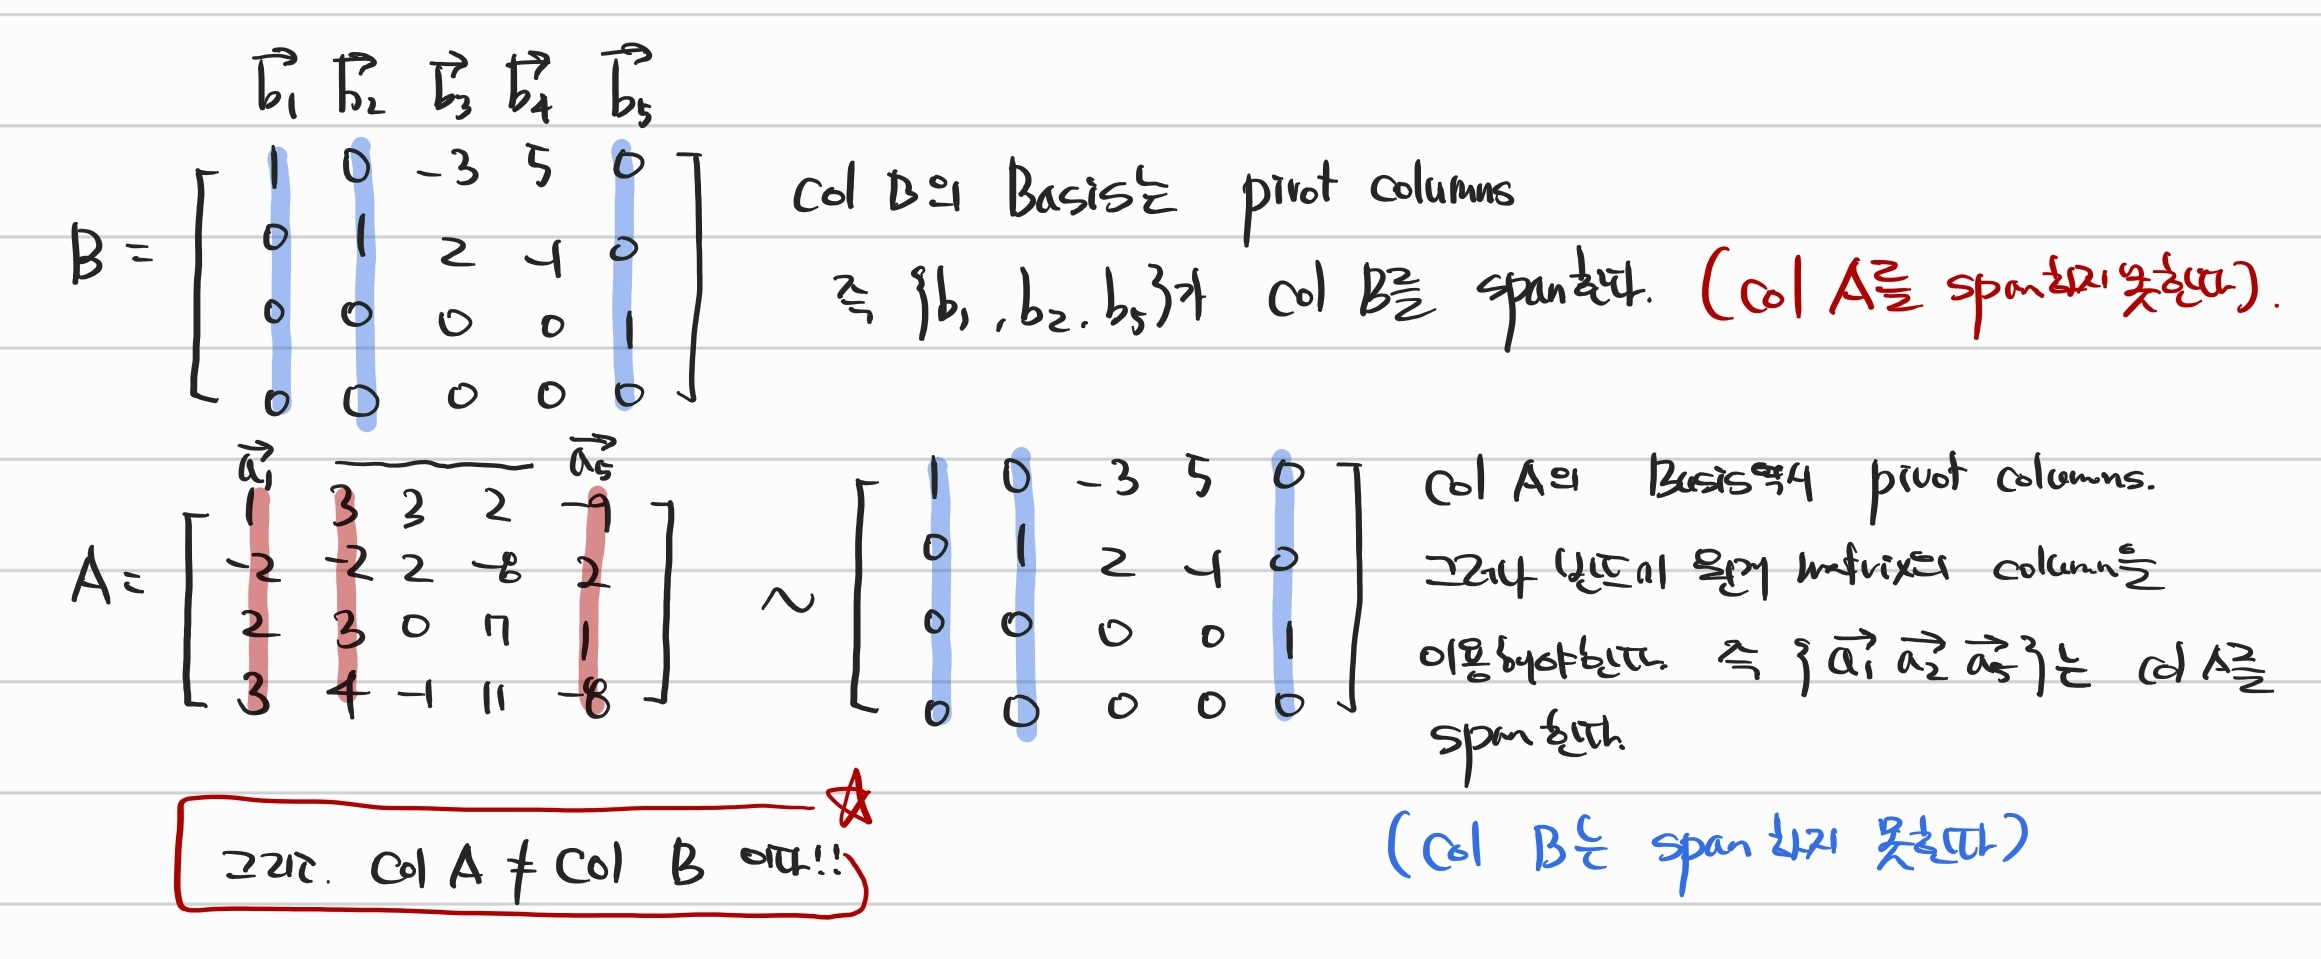 b₁ b₂ b₃ b₄ b₅
B = [ 1 0 -3 5 0
0 1 2 -1 0
0 0 0 0 1
0 0 0 0 0 ]
Col B의 Basis는 pivot columns
즉 {b₁, b₂, b₅}가 Col B를 span한다. (Col A를 span하지 못한다).
a₁ a₅
A = [ 1 3 3 2 -9
-2 -2 2 -8 2
2 3 0 7 1
3 4 -1 11 -8 ]
~ [ 1 0 -3 5 0
0 1 2 -1 0
0 0 0 0 1
0 0 0 0 0 ]
Col A의 Basis역시 pivot columns.
그러나 반드시 원래 matrix의 column을
이용해야한다. 즉 {a₁ a₂ a₅}는 Col A를
span한다.
(Col B는 span하지 못한다)
그리고. Col A ≠ Col B 이다!!